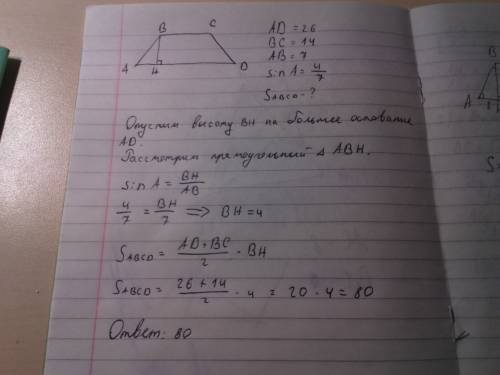 B C
A H D
AD = 26
BC = 14
AB = 7
sin A = 4/7
SABCD - ?
Опустим высоту BH на большее основание
AD.
Рассмотрим прямоугольный Δ ABH.
sin A = BH/AB
4/7 = BH/7 ⟹ BH = 4
SABCD = (AD + BC)/2 · BH
SABCD = (26 + 14)/2 · 4 = 20 · 4 = 80
Ответ: 80